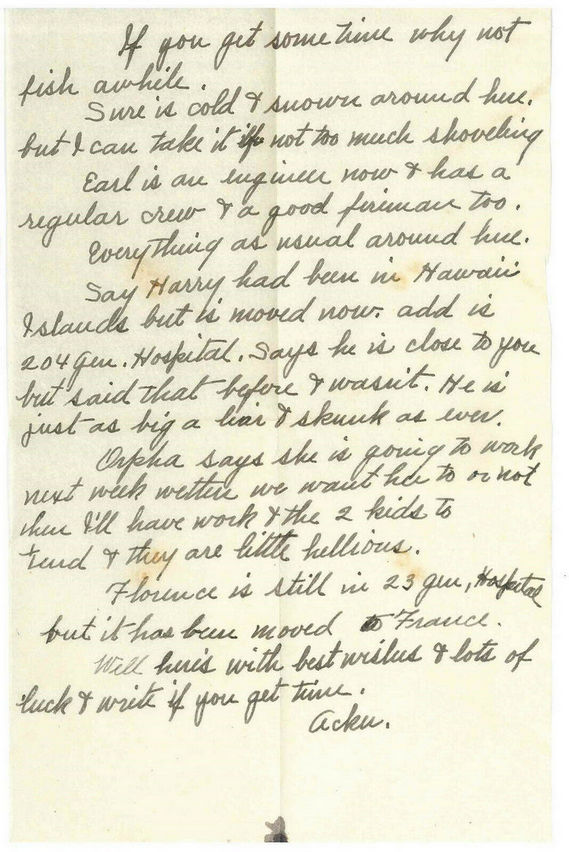 If you get some time why not
fish awhile.
Sure is cold & snown around here.
but I can take it if not too much shoveling
Earl is an engineer now & has a
regular crew & a good fireman too.
Everything as usual around here.
Say Harry had been in Hawaii
Islands but is moved now. add is
204 Gen. Hospital. Says he is close to you
but said that before & wasn't. He is
just as big a liar & skunk as ever.
Orpha says she is going to work
next week wether we want her to or not
then I'll have work & the 2 kids to
tend & they are little hellions.
Florence is still in 23 gen, Hospital
but it has been moved to France.
Well here's with best wishes & lots of
luck & write if you get time.